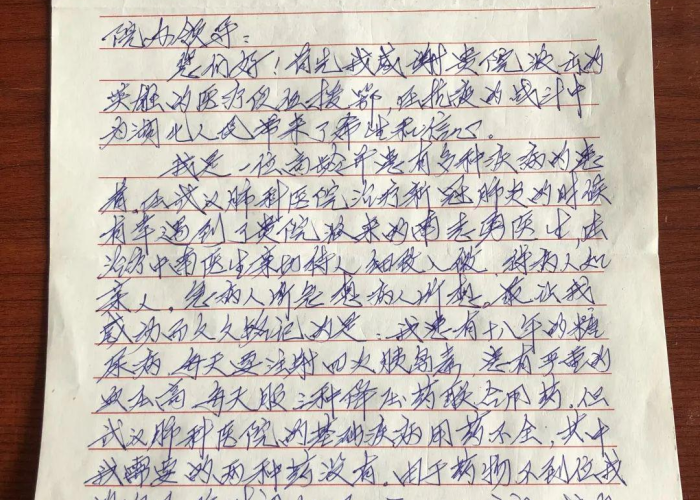 院办领导:
您们好!首先我感谢贵院派出的
英雄的医疗队伍援鄂,在抗疫的战斗中
为湖北人民带来了希望和信心。
我是一位高龄并患有多种疾病的患
者,在武汉肺科医院治疗新冠肺炎的时候
有幸遇到了贵院派来的南志勇医生,在
治疗中南医生亲切待人,细致入微,待病人如
亲人,急病人所急想病人所想。最让我
感动而久久铭记的是:我患有十八年的糖
尿病,每天要注射四次胰岛素,患有严重的
血压高,每天服三种降压药联合用药。但
武汉肺科医院的基础疾病用药不全,其中
我需要的两种药没有,由于药物不到位我